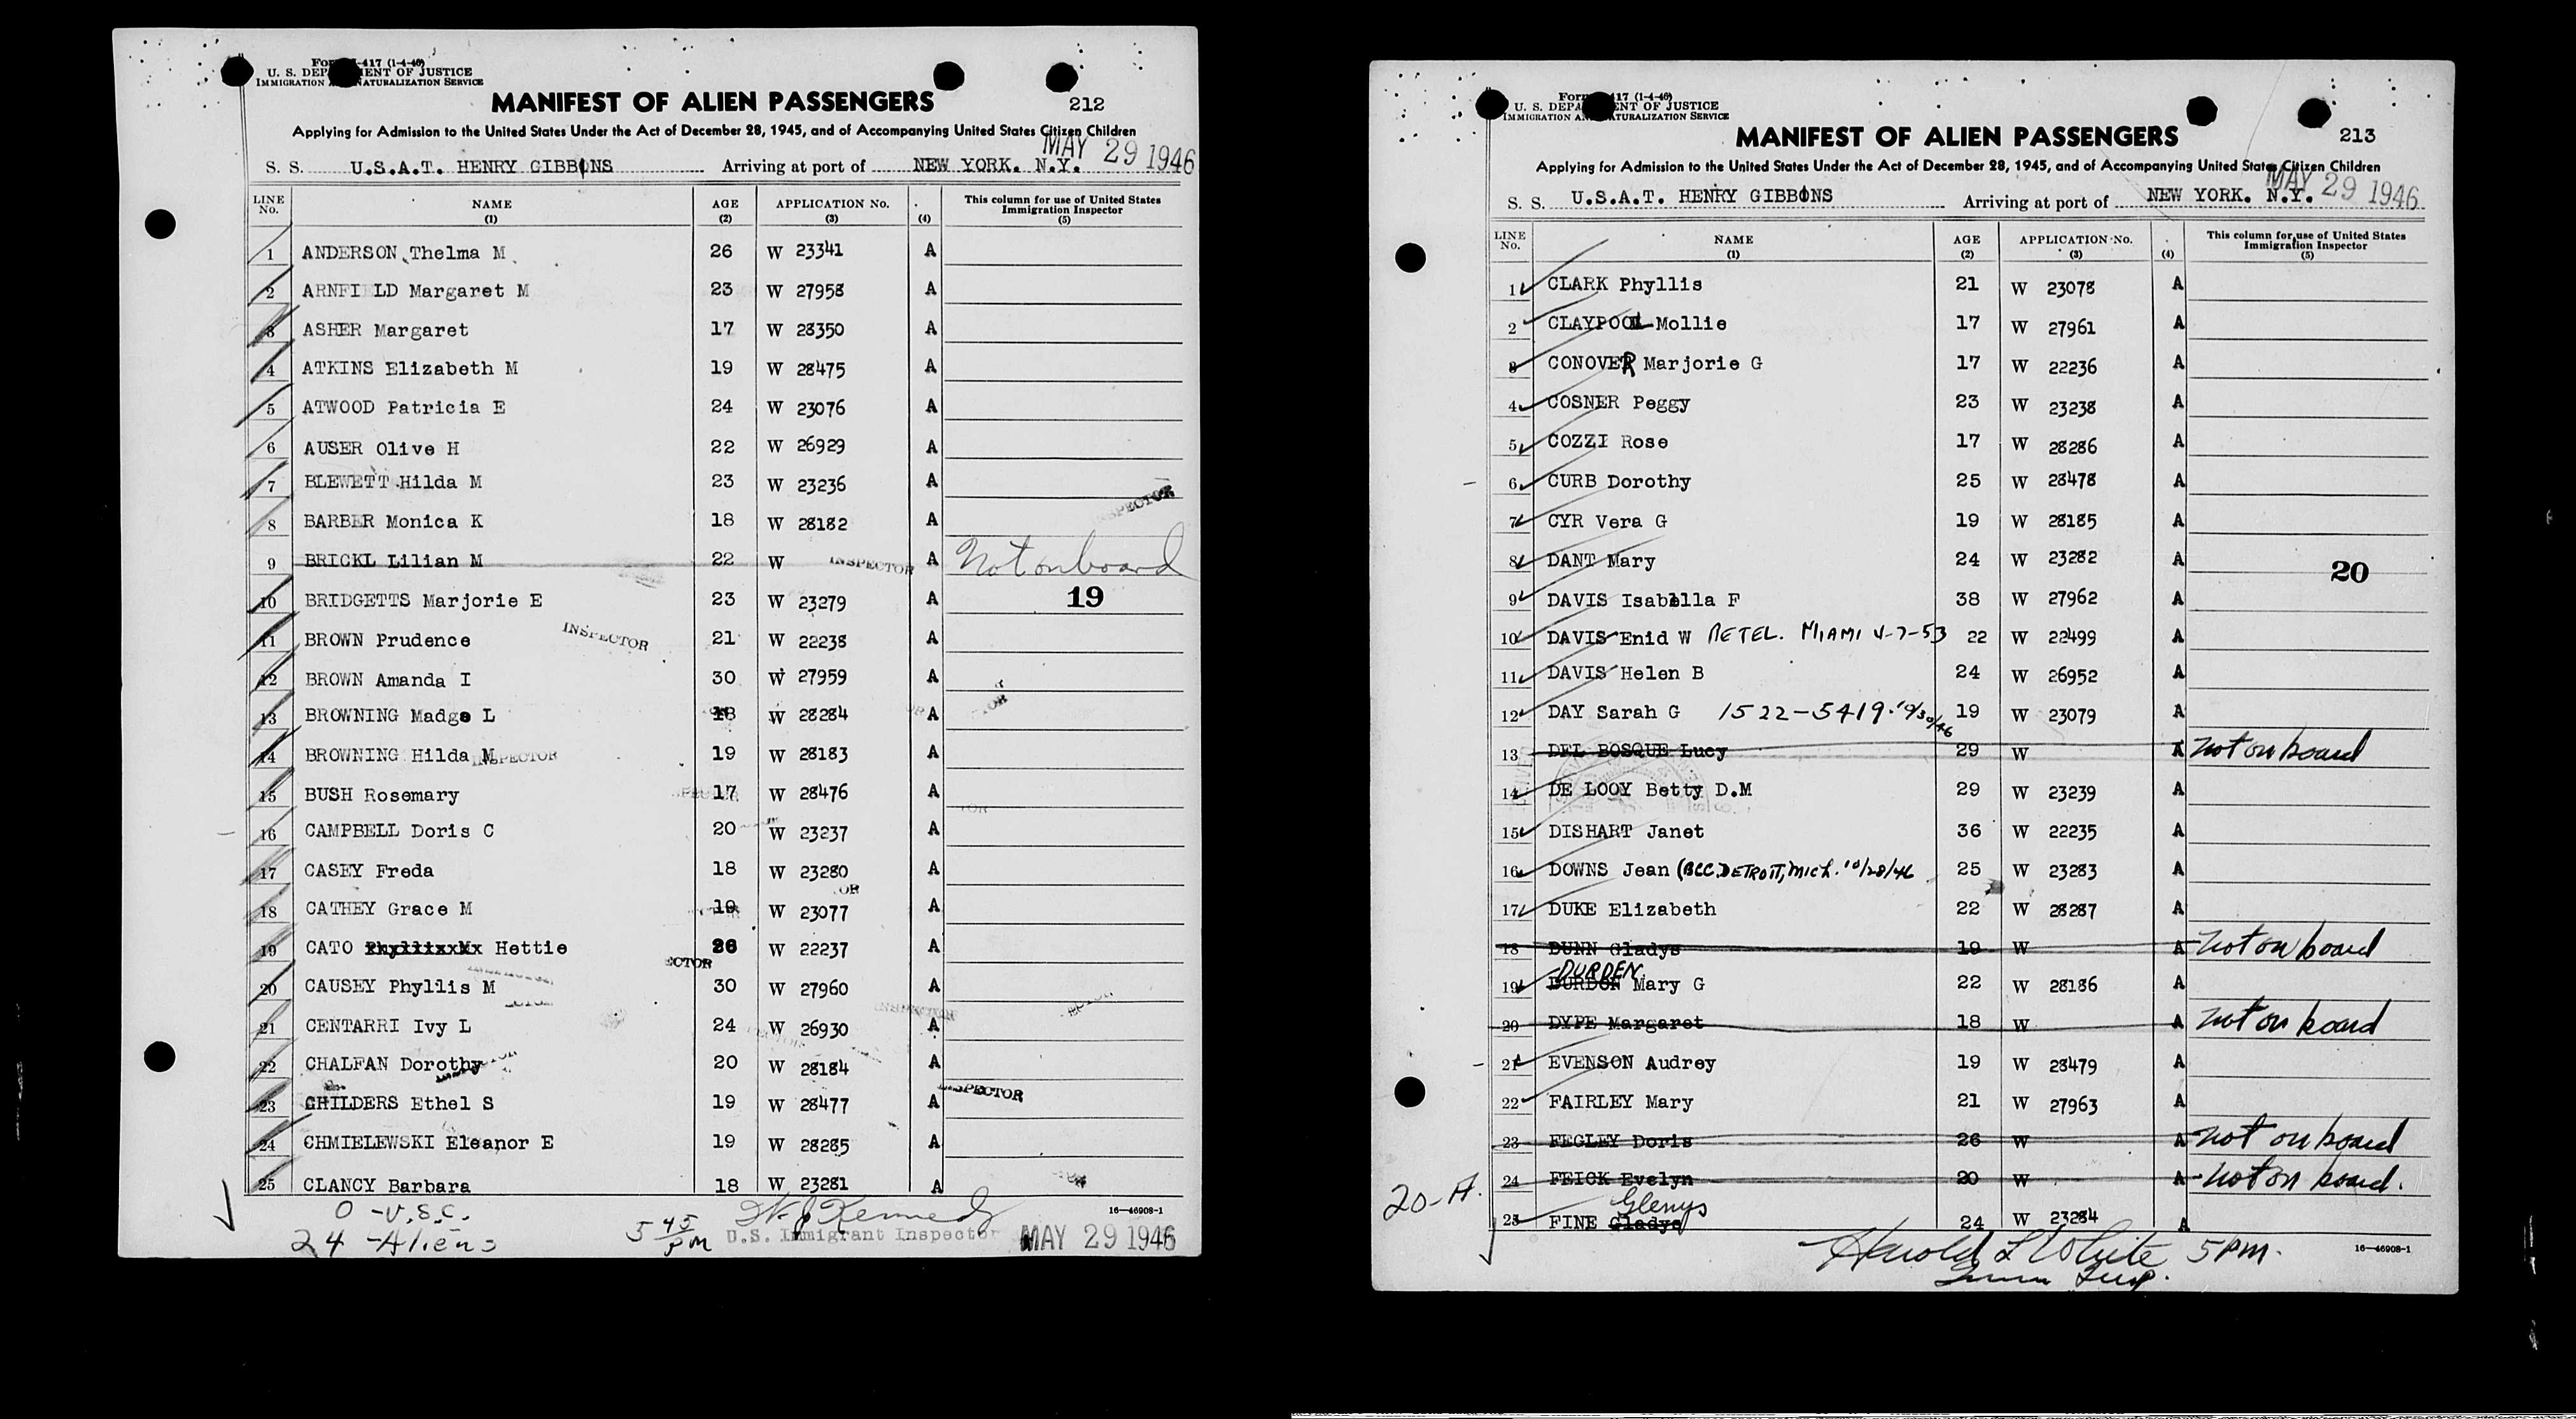 Form I-417 (1-4-46)
U. S. DEPARTMENT OF JUSTICE
IMMIGRATION AND NATURALIZATION SERVICE
MANIFEST OF ALIEN PASSENGERS
212
Applying for Admission to the United States Under the Act of December 28, 1945, and of Accompanying United States Citizen Children
MAY 29 1946
S. S. U.S.A.T. HENRY GIBBINS Arriving at port of NEW YORK. N.Y.
LINE No. NAME (1) AGE (2) APPLICATION No. (3) (4) This column for use of United States Immigration Inspector (5)
1 ANDERSON Thelma M 26 W 23341 A
2 ARNFI LD Margaret M 23 W 27958 A
3 ASHER Margaret 17 W 28350 A
4 ATKINS Elizabeth M 19 W 28475 A
5 ATWOOD Patricia E 24 W 23076 A
6 AUSER Olive H 22 W 26929 A
7 BLEWETT Hilda M 23 W 23236 A
8 BARBER Monica K 18 W 28182 A
9 BRICKL Lilian M 22 W INSPECTOR A Not on board
10 BRIDGETTS Marjorie E 23 W 23279 A 19
11 BROWN Prudence INSPECTOR 21 W 22238 A
12 BROWN Amanda I 30 W 27959 A
13 BROWNING Madge L 18 W 28284 A
14 BROWNING Hilda M INSPECTOR 19 W 28183 A
15 BUSH Rosemary 17 W 28476 A
16 CAMPBELL Doris C 20 W 23237 A
17 CASEY Freda 18 W 23280 A
18 CATHEY Grace M 19 W 23077 A
19 CATO Phyllis M Hettie 26 W 22237 A
20 CAUSEY Phyllis M 30 W 27960 A
21 CENTARRI Ivy L 24 W 26930 A
22 CHALFAN Dorothy 20 W 28184 A
23 CHILDERS Ethel S 19 W 28477 A INSPECTOR
24 CHMIELEWSKI Eleanor E 19 W 28285 A
25 CLANCY Barbara 18 W 23281 A
0 - U.S.C.
24 - Aliens
5 45 PM
W J Kennedy
U.S. Immigrant Inspector MAY 29 1946
16—46908-1
Form I-417 (1-4-46)
U. S. DEPARTMENT OF JUSTICE
IMMIGRATION AND NATURALIZATION SERVICE
MANIFEST OF ALIEN PASSENGERS
213
Applying for Admission to the United States Under the Act of December 28, 1945, and of Accompanying United States Citizen Children
MAY 29 1946
S. S. U.S.A.T. HENRY GIBBINS Arriving at port of NEW YORK. N.Y.
LINE No. NAME (1) AGE (2) APPLICATION No. (3) (4) This column for use of United States Immigration Inspector (5)
1 CLARK Phyllis 21 W 23078 A
2 CLAYPOOL Mollie 17 W 27961 A
3 CONOVER Marjorie G 17 W 22236 A
4 COSNER Peggy 23 W 23238 A
5 COZZI Rose 17 W 28286 A
6 CURB Dorothy 25 W 28478 A
7 CYR Vera G 19 W 28185 A
8 DANT Mary 24 W 23282 A 20
9 DAVIS Isabella F 38 W 27962 A
10 DAVIS Enid W RETEL. MIAMI V-7-53 22 W 22499 A
11 DAVIS Helen B 24 W 26952 A
12 DAY Sarah G 1522-5419. 10/30/46 19 W 23079 A
13 DEL BOSQUE Lucy 29 W A not on board
14 DE LOOY Betty D.M 29 W 23239 A
15 DISHART Janet 36 W 22235 A
16 DOWNS Jean (BCC. DETROIT, Mich. 10/28/46 25 W 23283 A
17 DUKE Elizabeth 22 W 28287 A
18 DUNN Gladys 19 W A not on board
DURDEN
19 DURDON Mary G 22 W 28186 A
20 DYPE Margaret 18 W A not on board
21 EVENSON Audrey 19 W 28479 A
22 FAIRLEY Mary 21 W 27963 A
23 FEGLEY Doris 26 W A not on board
24 FEICK Evelyn 20 W A not on board.
20-A.
Glenys
25 FINE Gladys 24 W 23284 A
Harold L White 5 PM.
Imm Insp.
16—46908-1